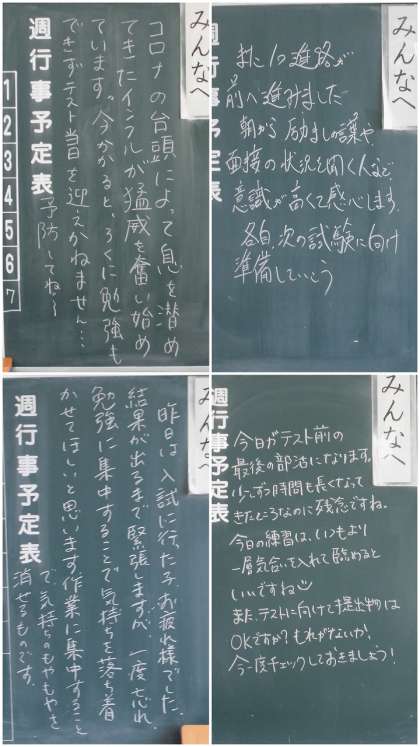 みんなへ
コロナの台頭によって息を潜め
てきたインフルが猛威を奮い始め
ています。今かかると、ろくに勉強も
できずテスト当日を迎えかねません…
予防してね〜
週行事予定表
1
2
3
4
5
6
7
みんなへ
また1つ進路が
前へ進みました
朝から励ましの言葉や、
面接の状況を聞く人など、
意識が高くて感心します。
各自、次の試験に向け
準備していこう
表
みんなへ
昨日は入試に行った子お疲れ様でした。
結果が出るまで緊張しますが、一度忘れ、
勉強に集中することで気持ちを落ち着
かせてほしいと思います。作業に集中すること
で気持ちのもやもやを
消せるものです。
週行事予定表
みんなへ
今日がテスト前の
最後の部活になります。
少しずつ時間も長くなって
きたところなのに残念ですね。
今日の練習は、いつもより
一層気合いを入れて臨めると
いいですね
また、テストに向けて提出物は
OKですか?もれがないか、
今一度チェックしておきましょう!
週行事予定表